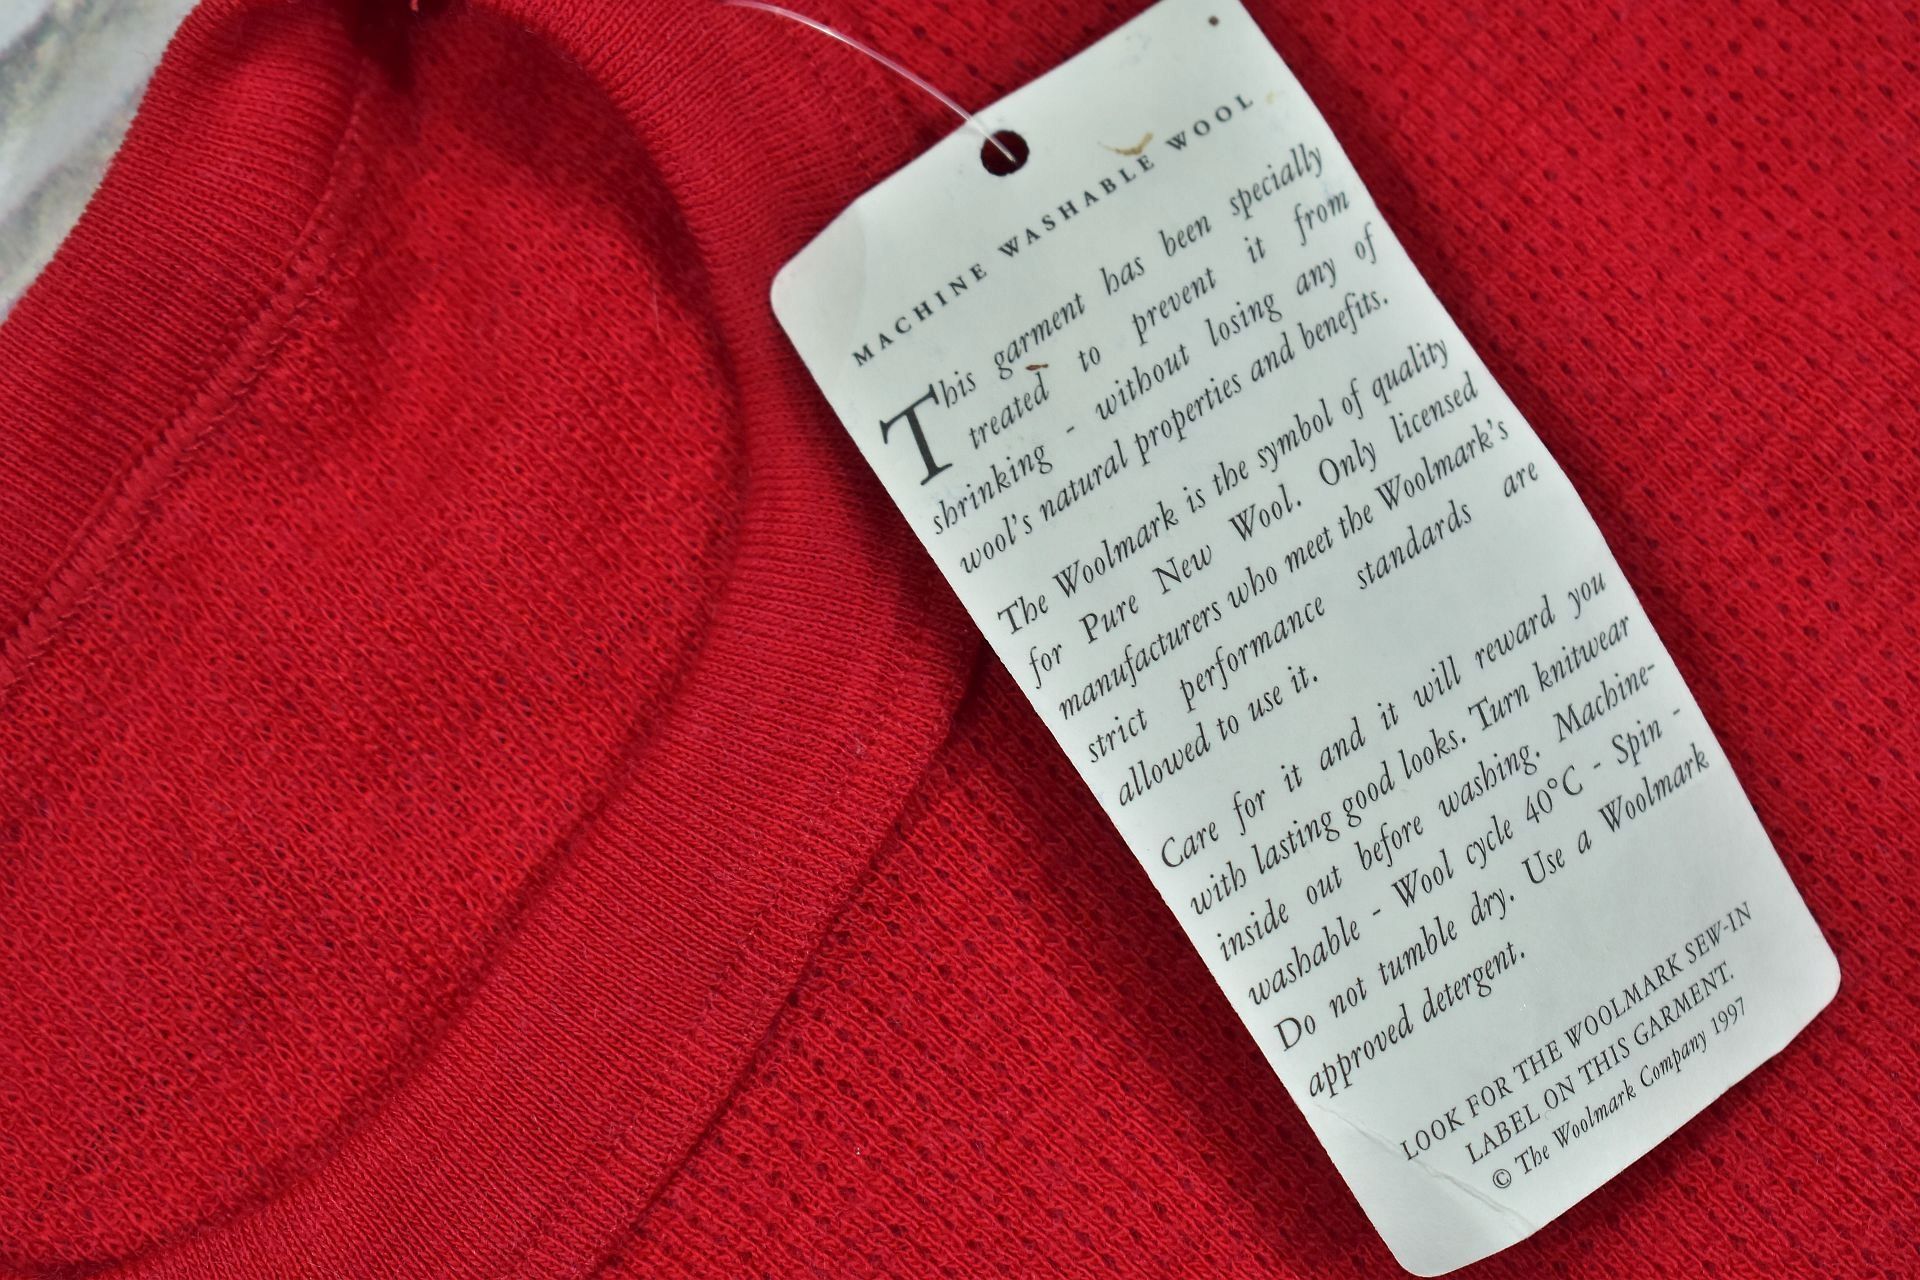 MACHINE WASHABLE WOOL
This garment has been specially
treated to prevent it from
shrinking - without losing any of
wool's natural properties and benefits.
The Woolmark is the symbol of quality
for Pure New Wool. Only licensed
manufacturers who meet the Woolmark's
strict performance standards are
allowed to use it.
Care for it and it will reward you
with lasting good looks. Turn knitwear
inside out before washing. Machine-
washable - Wool cycle 40°C - Spin -
Do not tumble dry. Use a Woolmark
approved detergent.
LOOK FOR THE WOOLMARK SEW-IN
LABEL ON THIS GARMENT.
© The Woolmark Company 1997